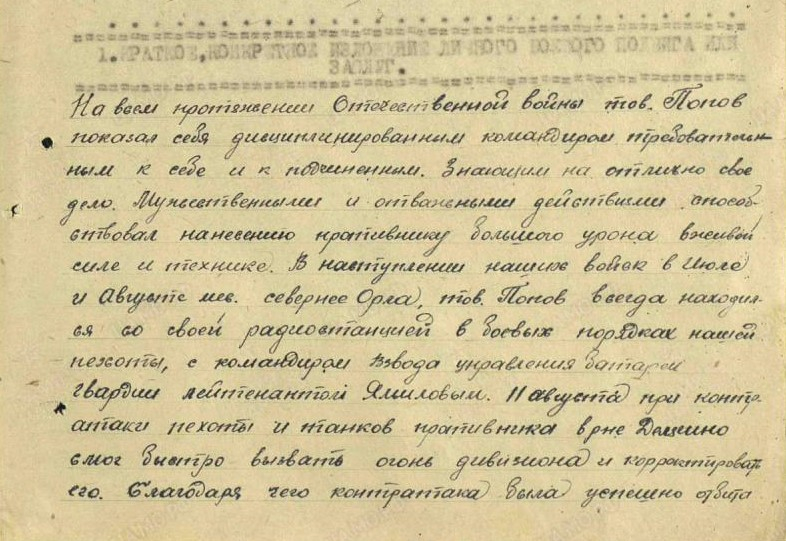 1.КРАТКОЕ,КОНКРЕТНОЕ ИЗЛОЖЕНИЕ ЛИЧНОГО БОЕВОГО ПОДВИГА ИЛИ
ЗАСЛУГ.
На всем протяжении Отечественной войны тов. Попов
показал себя дисциплинированным командиром требователь-
ным к себе и к подчиненным. Знающим на отлично свое
дело. Мужественными и отважными действиями способ-
ствовал нанесению противнику большого урона в живой
силе и технике. В наступлении наших войск в Июле
и Августе мес. севернее Орла, тов. Попов всегда находил-
ся со своей радиостанцией в боевых порядках нашей
пехоты, с командиром взвода управления батареи
гвардии лейтенантом Ямиловым. 11 августа при контр-
атаки пехоты и танков противника в рне
смог быстро вызвать огонь дивизиона и корректировать
его. Благодаря чего контратака была успешно отбита